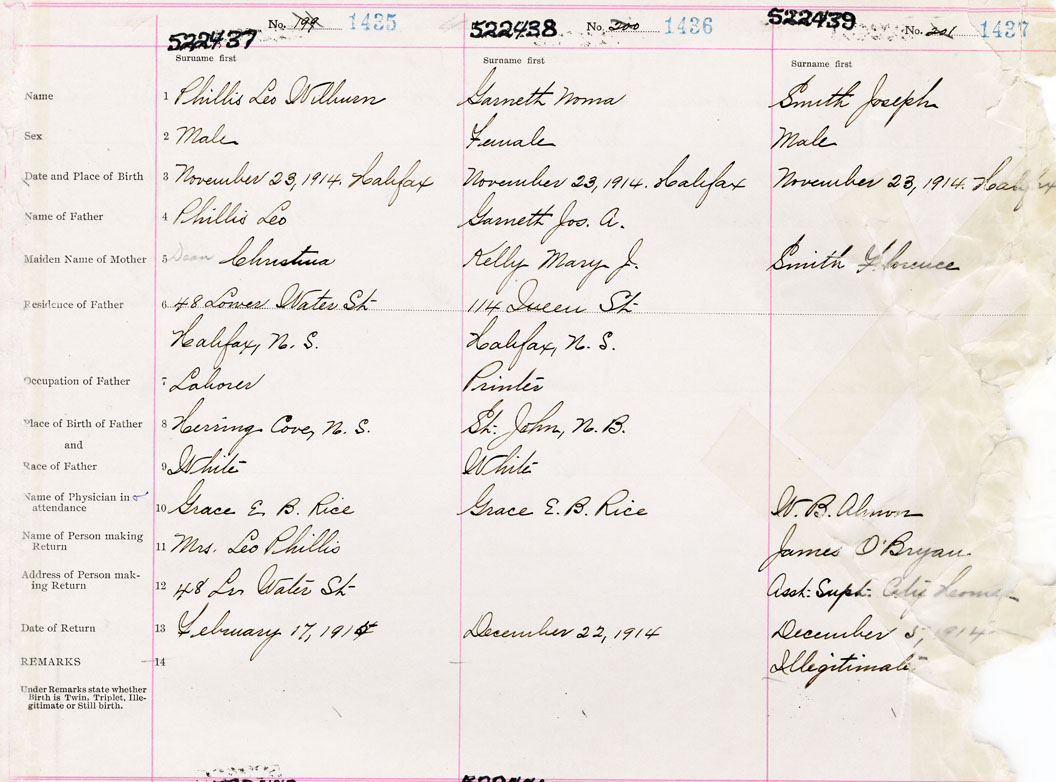 No. 199 1435 No. 200 1436 No. 201 1437
522437 522438 522439
Surname first Surname first Surname first
Name 1 Phillis Leo Wilburn Garneth Noma Smith Joseph
Sex 2 Male Female Male
Date and Place of Birth 3 November 23, 1914. Halifax November 23, 1914. Halifax November 23, 1914. Halifax
Name of Father 4 Phillis Leo Garneth Jos. A.
Maiden Name of Mother 5 Dean Christina Kelly Mary J. Smith Florence
Residence of Father 6 48 Lower Water St 114 Queen St
Halifax, N. S. Halifax, N. S.
Occupation of Father 7 Laborer Printer
Place of Birth of Father 8 Herring Cove, N. S. St. John, N. B.
and
Race of Father 9 White White
Name of Physician in attendance 10 Grace E. B. Rice Grace E. B. Rice W. B. Almon
Name of Person making Return 11 Mrs. Leo Phillis James O'Bryan
Address of Person making Return 12 48 Lr Water St Asst. Supt. City Home
Date of Return 13 February 17, 1915 December 22, 1914 December 5, 1914
REMARKS 14 Illegitimate
Under Remarks state whether
Birth is Twin, Triplet, Ille-
gitimate or Still birth.